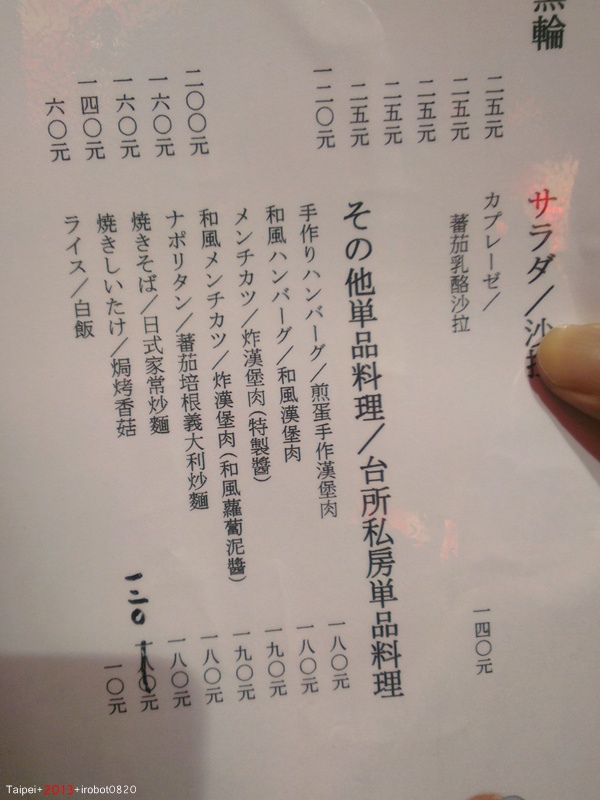 輪
二五元
二五元
二五元
二五元
二五元
一二〇元
二〇〇元
一六〇元
一六〇元
一四〇元
六〇元
サラダ／沙拉
カプレーゼ／
蕃茄乳酪沙拉 一四〇元
その他単品料理／台所私房単品料理
手作りハンバーグ／煎蛋手作漢堡肉 一八〇元
和風ハンバーグ／和風漢堡肉 一八〇元
メンチカツ／炸漢堡肉(特製醬) 一九〇元
和風メンチカツ／炸漢堡肉(和風蘿蔔泥醬) 一九〇元
ナポリタン／蕃茄培根義大利炒麵 一八〇元
焼きそば／日式家常炒麵 一八〇元
焼きしいたけ／焗烤香菇 一二0
ライス／白飯 一〇元
Taipei+2013+irobot0820